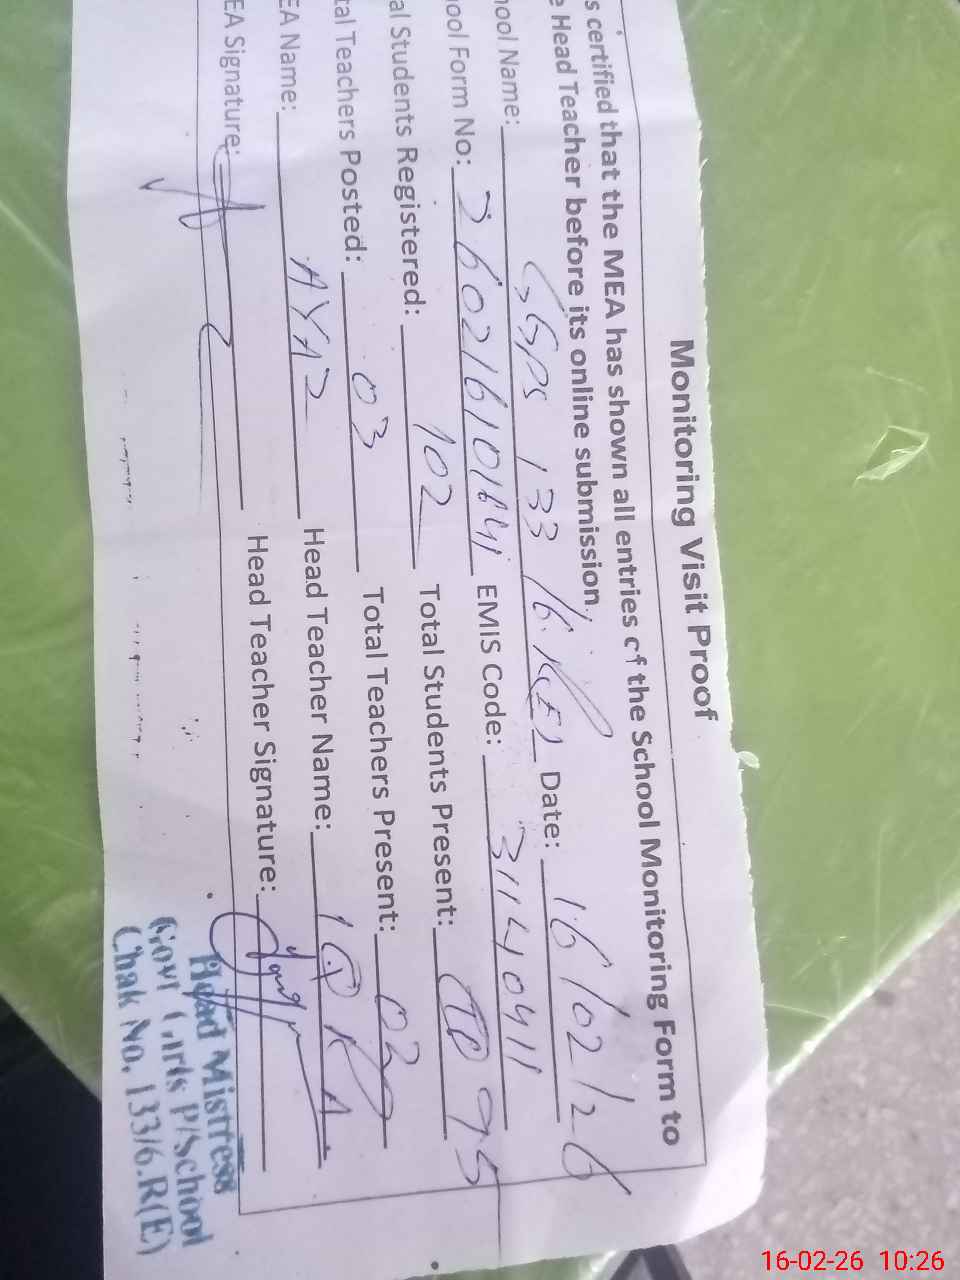 Monitoring Visit Proof
s certified that the MEA has shown all entries of the School Monitoring Form to
e Head Teacher before its online submission.
hool Name: GGPS 133/6.R(E) Date: 16/02/26
ool Form No: EMIS Code: 31140411
al Students Registered: 102 Total Students Present: 95
tal Teachers Posted: 03 Total Teachers Present: 02
EA Name: AYAZ Head Teacher Name: IQRA
EA Signature: Head Teacher Signature:
Head Mistress
Govt Girls P/School
Chak No. 133/6.R(E)
16-02-26 10:26